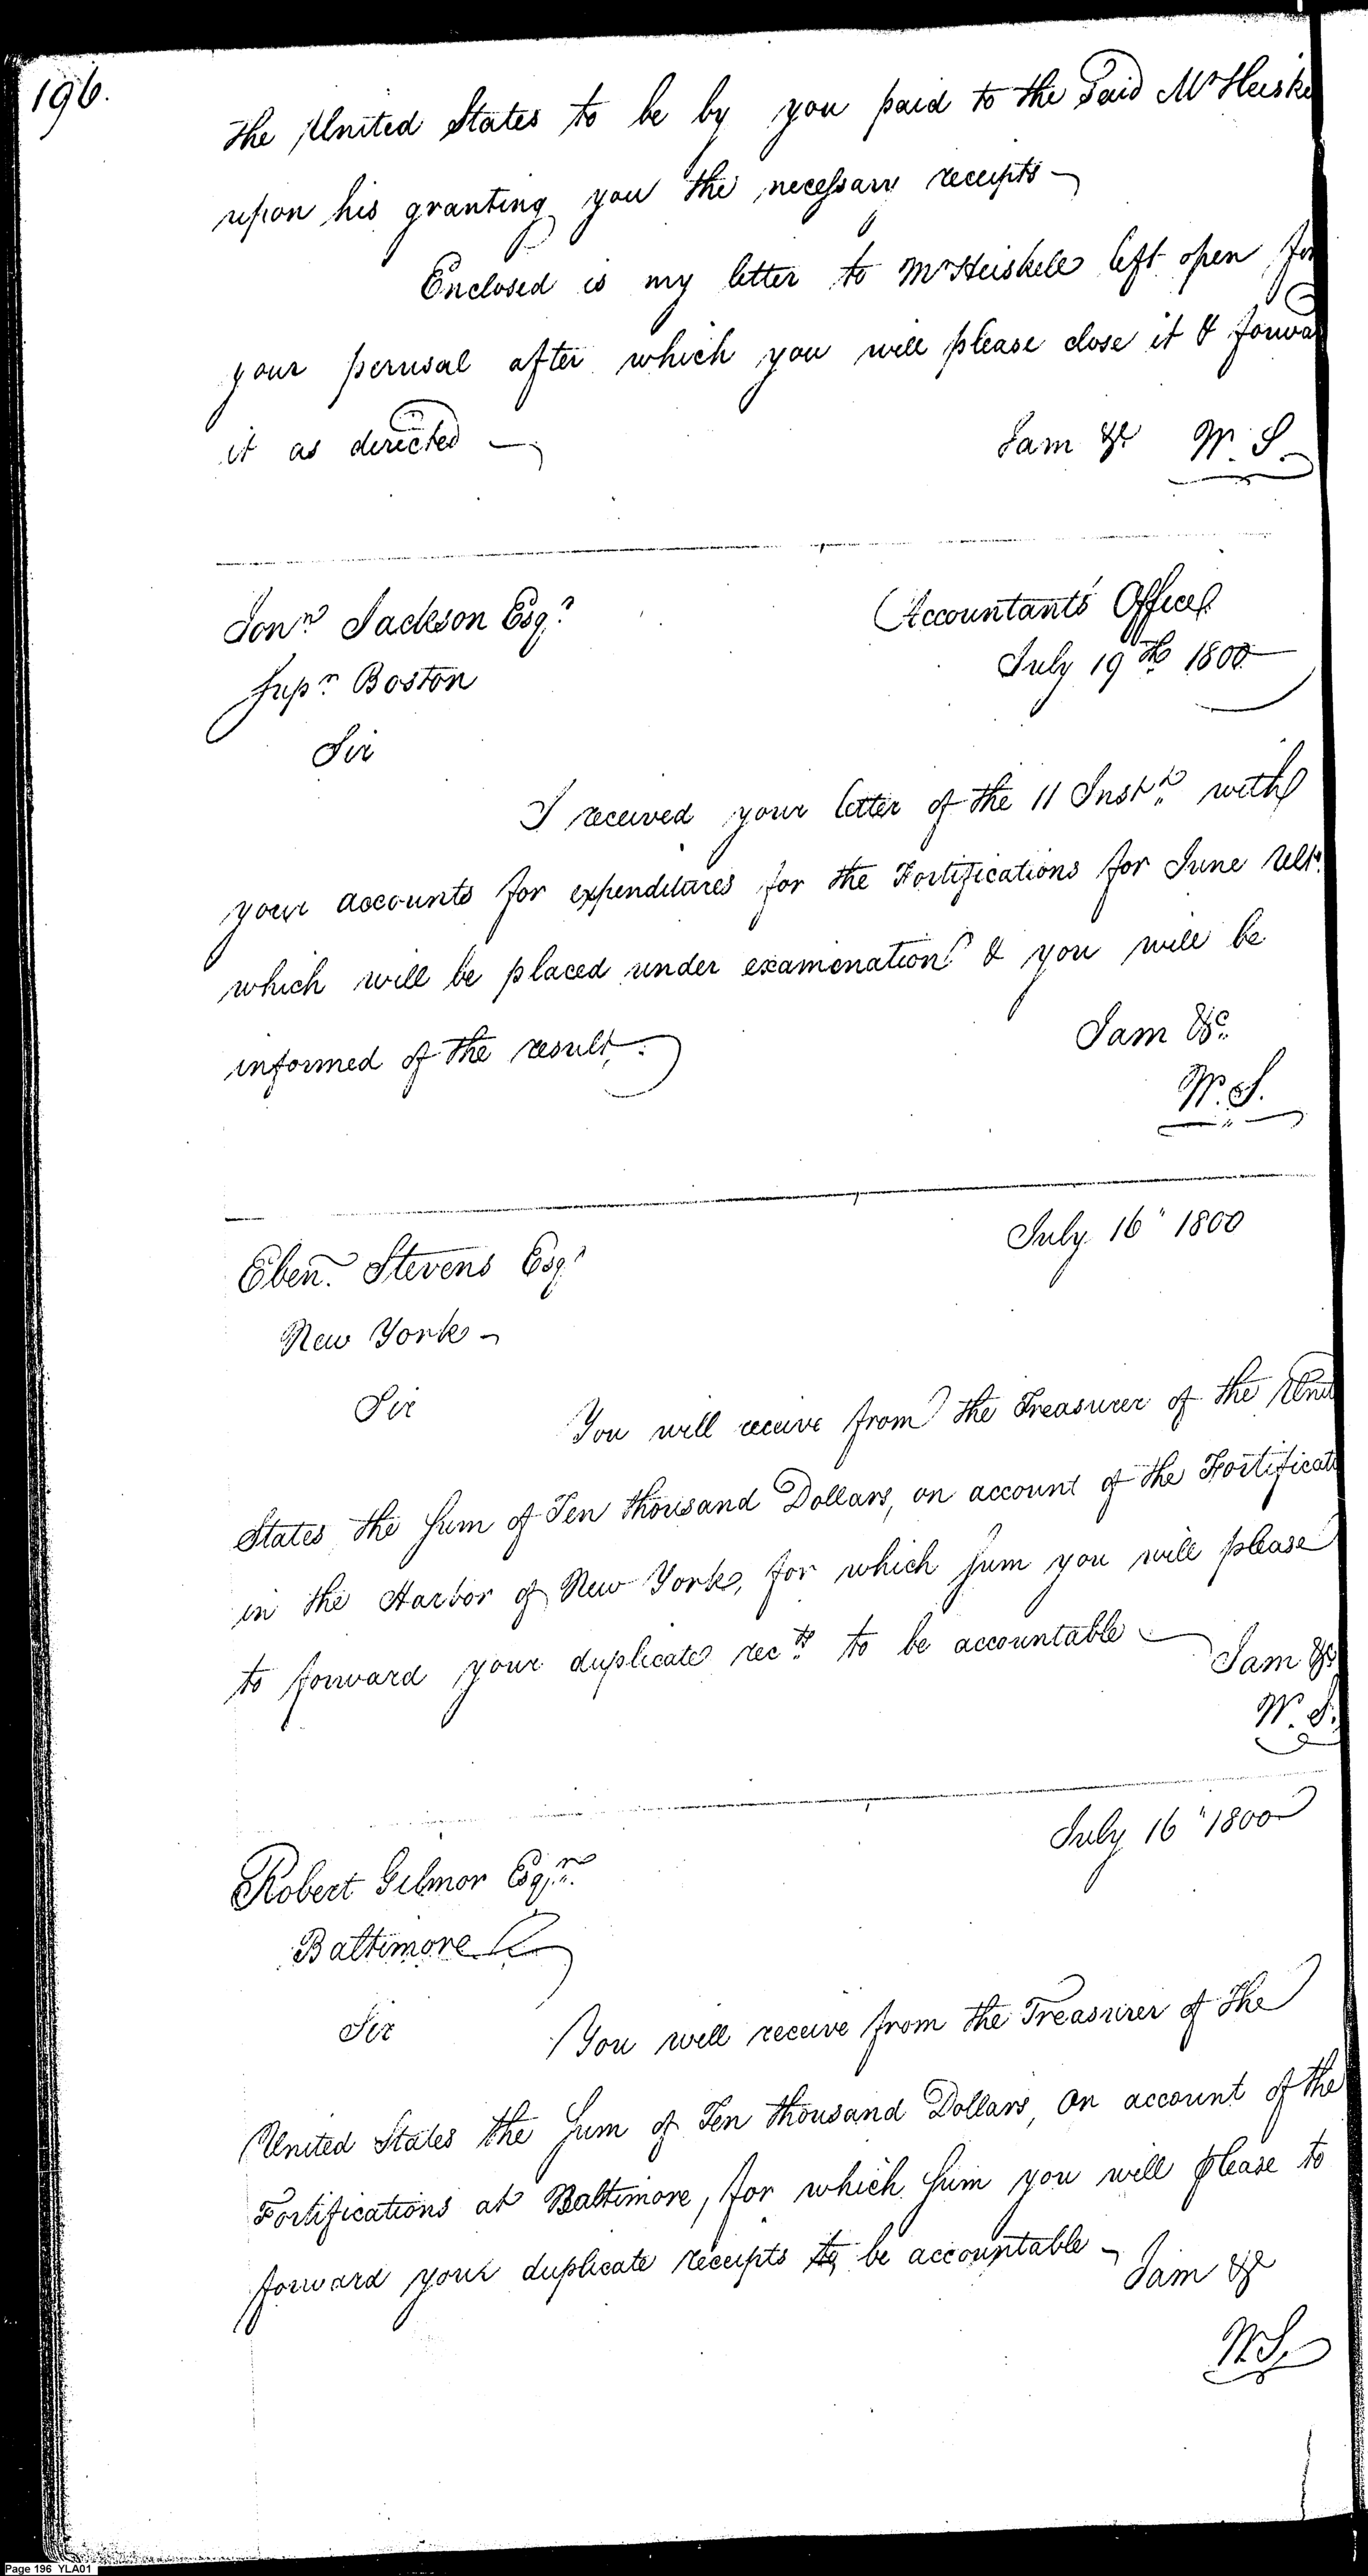 196.
the United States to be by you paid to the Said Mr Heiske
upon his granting you the necessary receipts —
Enclosed is my letter to Mr Heiskell left open for
your perusal after which you will please close it & forwa
it as directed —
I am &c W. S.
Jonn. Jackson Esqr.
Accountants Office
July 19th 1800
Supr. Boston
Sir
I received your letter of the 11 Instt. with
your accounts for expenditures for the Fortifications for June Ulto.
which will be placed under examination & you will be
informed of the result.
I am &c.
W. S.
July 16" 1800
Eben. Stevens Esqr.
New York —
Sir
You will receive from the Treasurer of the Unit
States the Sum of Ten thousand Dollars, on account of the Fortificati
in the Harbor of New York, for which Sum you will please
to forward your duplicate recets. to be accountable —
I am &c
W. S.
July 16" 1800
Robert Gilmor Esqr.
Baltimore
Sir
You will receive from the Treasurer of the
United States the Sum of Ten thousand Dollars, on account of the
Fortifications at Baltimore, for which Sum you will please to
forward your duplicate receipts to be accountable —
I am &c
W. S.
Page 196 YLA01